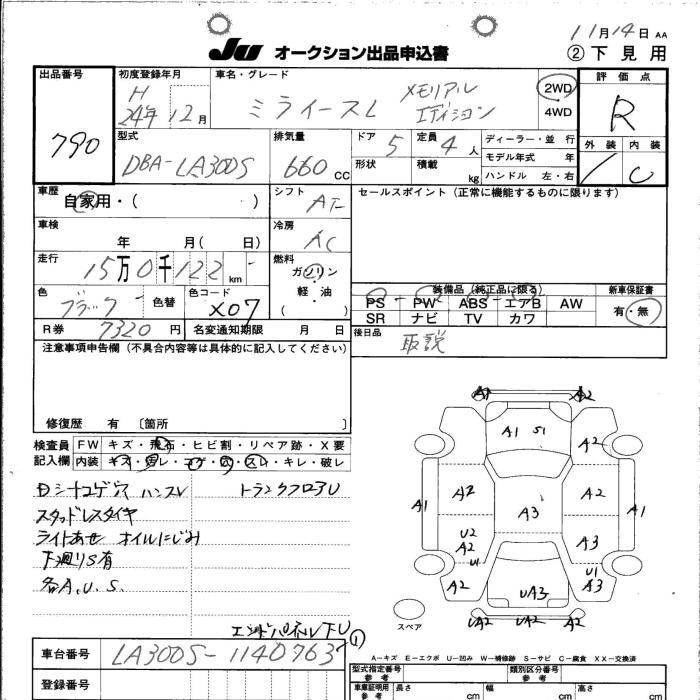 11月14日 AA
JU オークション出品申込書
② 下見用
出品番号
790
初度登録年月
H
24年 12月
車名・グレード
ミライースL メモリアル
エディション
2WD
4WD
評価点
R
外装 内装
C
型式
DBA-LA300S
排気量
660 CC
ドア 5
形状
定員 4 人
積載 kg
ディーラー・並行
モデル年式 年
ハンドル 左・右
車歴
自家用・( )
シフト
AT
セールスポイント(正常に機能するものに限ります)
車検
年 月( 日)
冷房
AC
走行
15万0千122 km
燃料
ガソリン
軽・油
( )
色
ブラック
色替
色コード
X07
装備品(純正品に限る)
PS PW ABS エアB AW
SR ナビ TV カワ
新車保証書
有・無
R券 7320 円
名変通知期限 月 日
後日品
取説
注意事項申告欄(不具合内容等は具体的に記入してください)
修復歴 有 〔箇所 〕
検査員
記入欄
FW キズ・飛石・ヒビ割・リペア跡・X要
内装 キズ・汚レ・コゲ・穴・スレ・キレ・破レ
Dシートコゲ穴 ハンスレ トランクフロアU
スタッドレスタイヤ
ライトあせ オイルにじみ
下廻りS有
各A.U.S.
エンドパネル下U
①
A1 A2
A1 S1
A2
A1 A2 A3 A2 A1
U2
A2 U1
A3
A2 UA3 U1
A3
UA2 UA2 A2
スペア
A-キズ E-エクボ U-凹み W-補修跡 S-サビ C-腐食 XX-交換済
車台番号 LA300S-1140763
登録番号
型式指定番号
参考
類別区分番号
参考
車庫証明用
参考
長さ cm
幅 cm
高さ cm